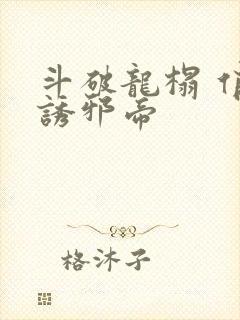 斗破龍榻
誘邪帝
格沐子